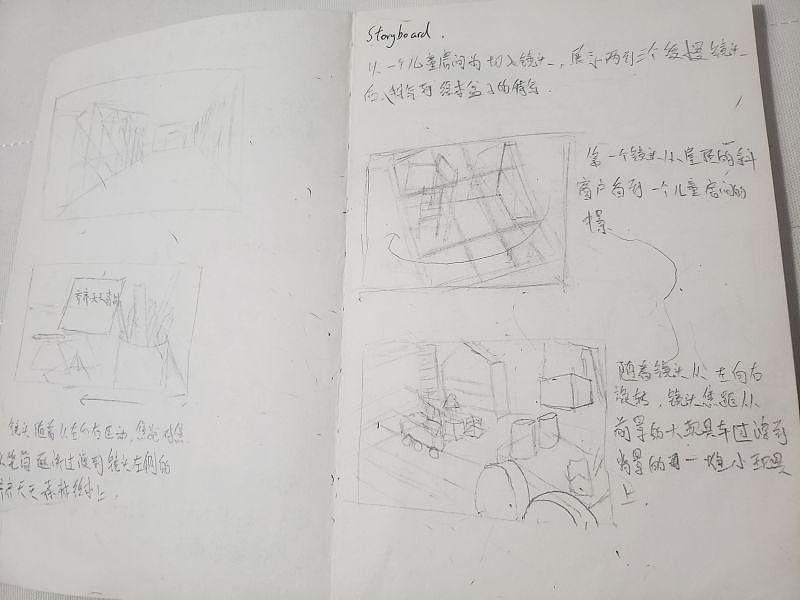 Storyboard.
以一个儿童房间为切入镜头，展示两到三个镜头
后，的特写.
第一个镜头从屋顶的斜
窗户看到一个儿童房间的
随着镜头从左向右
旋转，镜头焦距从
前景的大玩具车过渡到
背景的一堆小玩具
上.
镜头随着从左向右运动，焦距对焦
从笔筒逐渐过渡到镜头左侧的
上.